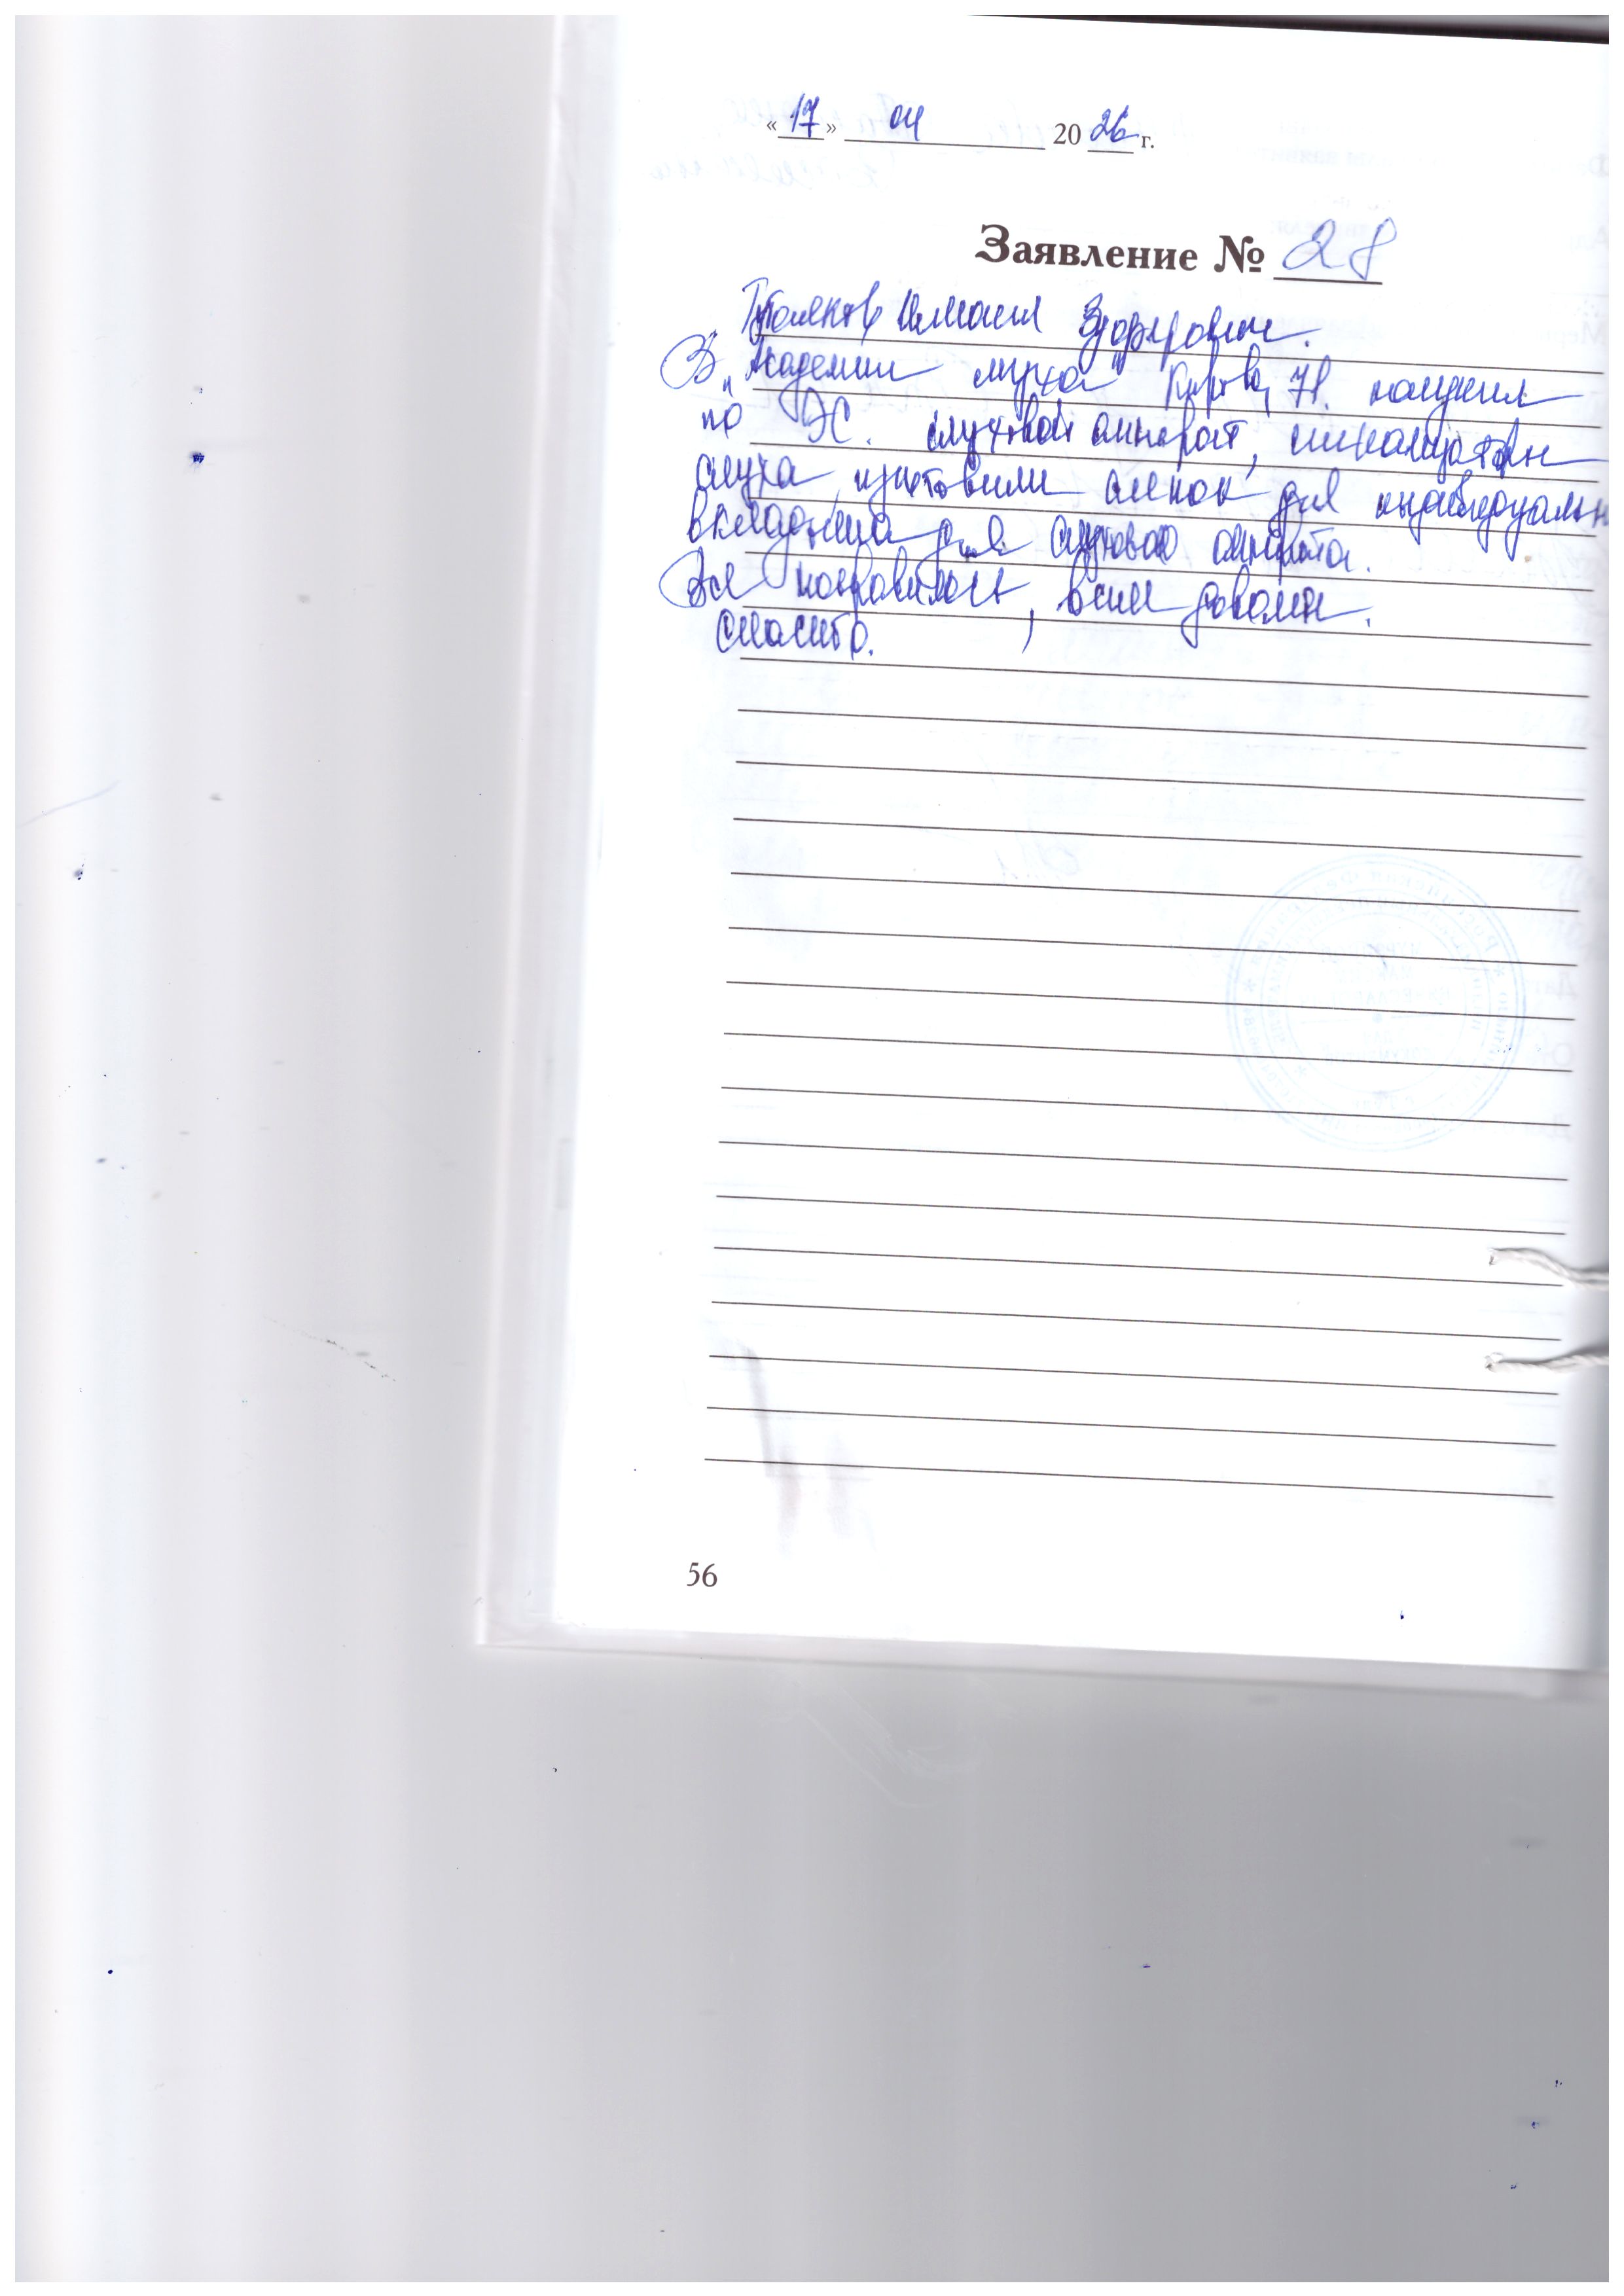 «17» 04 2026 г.
Заявление № 28
Исмаил
В "Академии слуха" Кирова, 71. получил
по ЭС. слуховой аппарат,
слуха, изготовили слепок для индивидуальн
вкладыша для слухового аппарата.
Все понравилось, всем доволен.
Спасибо.
56